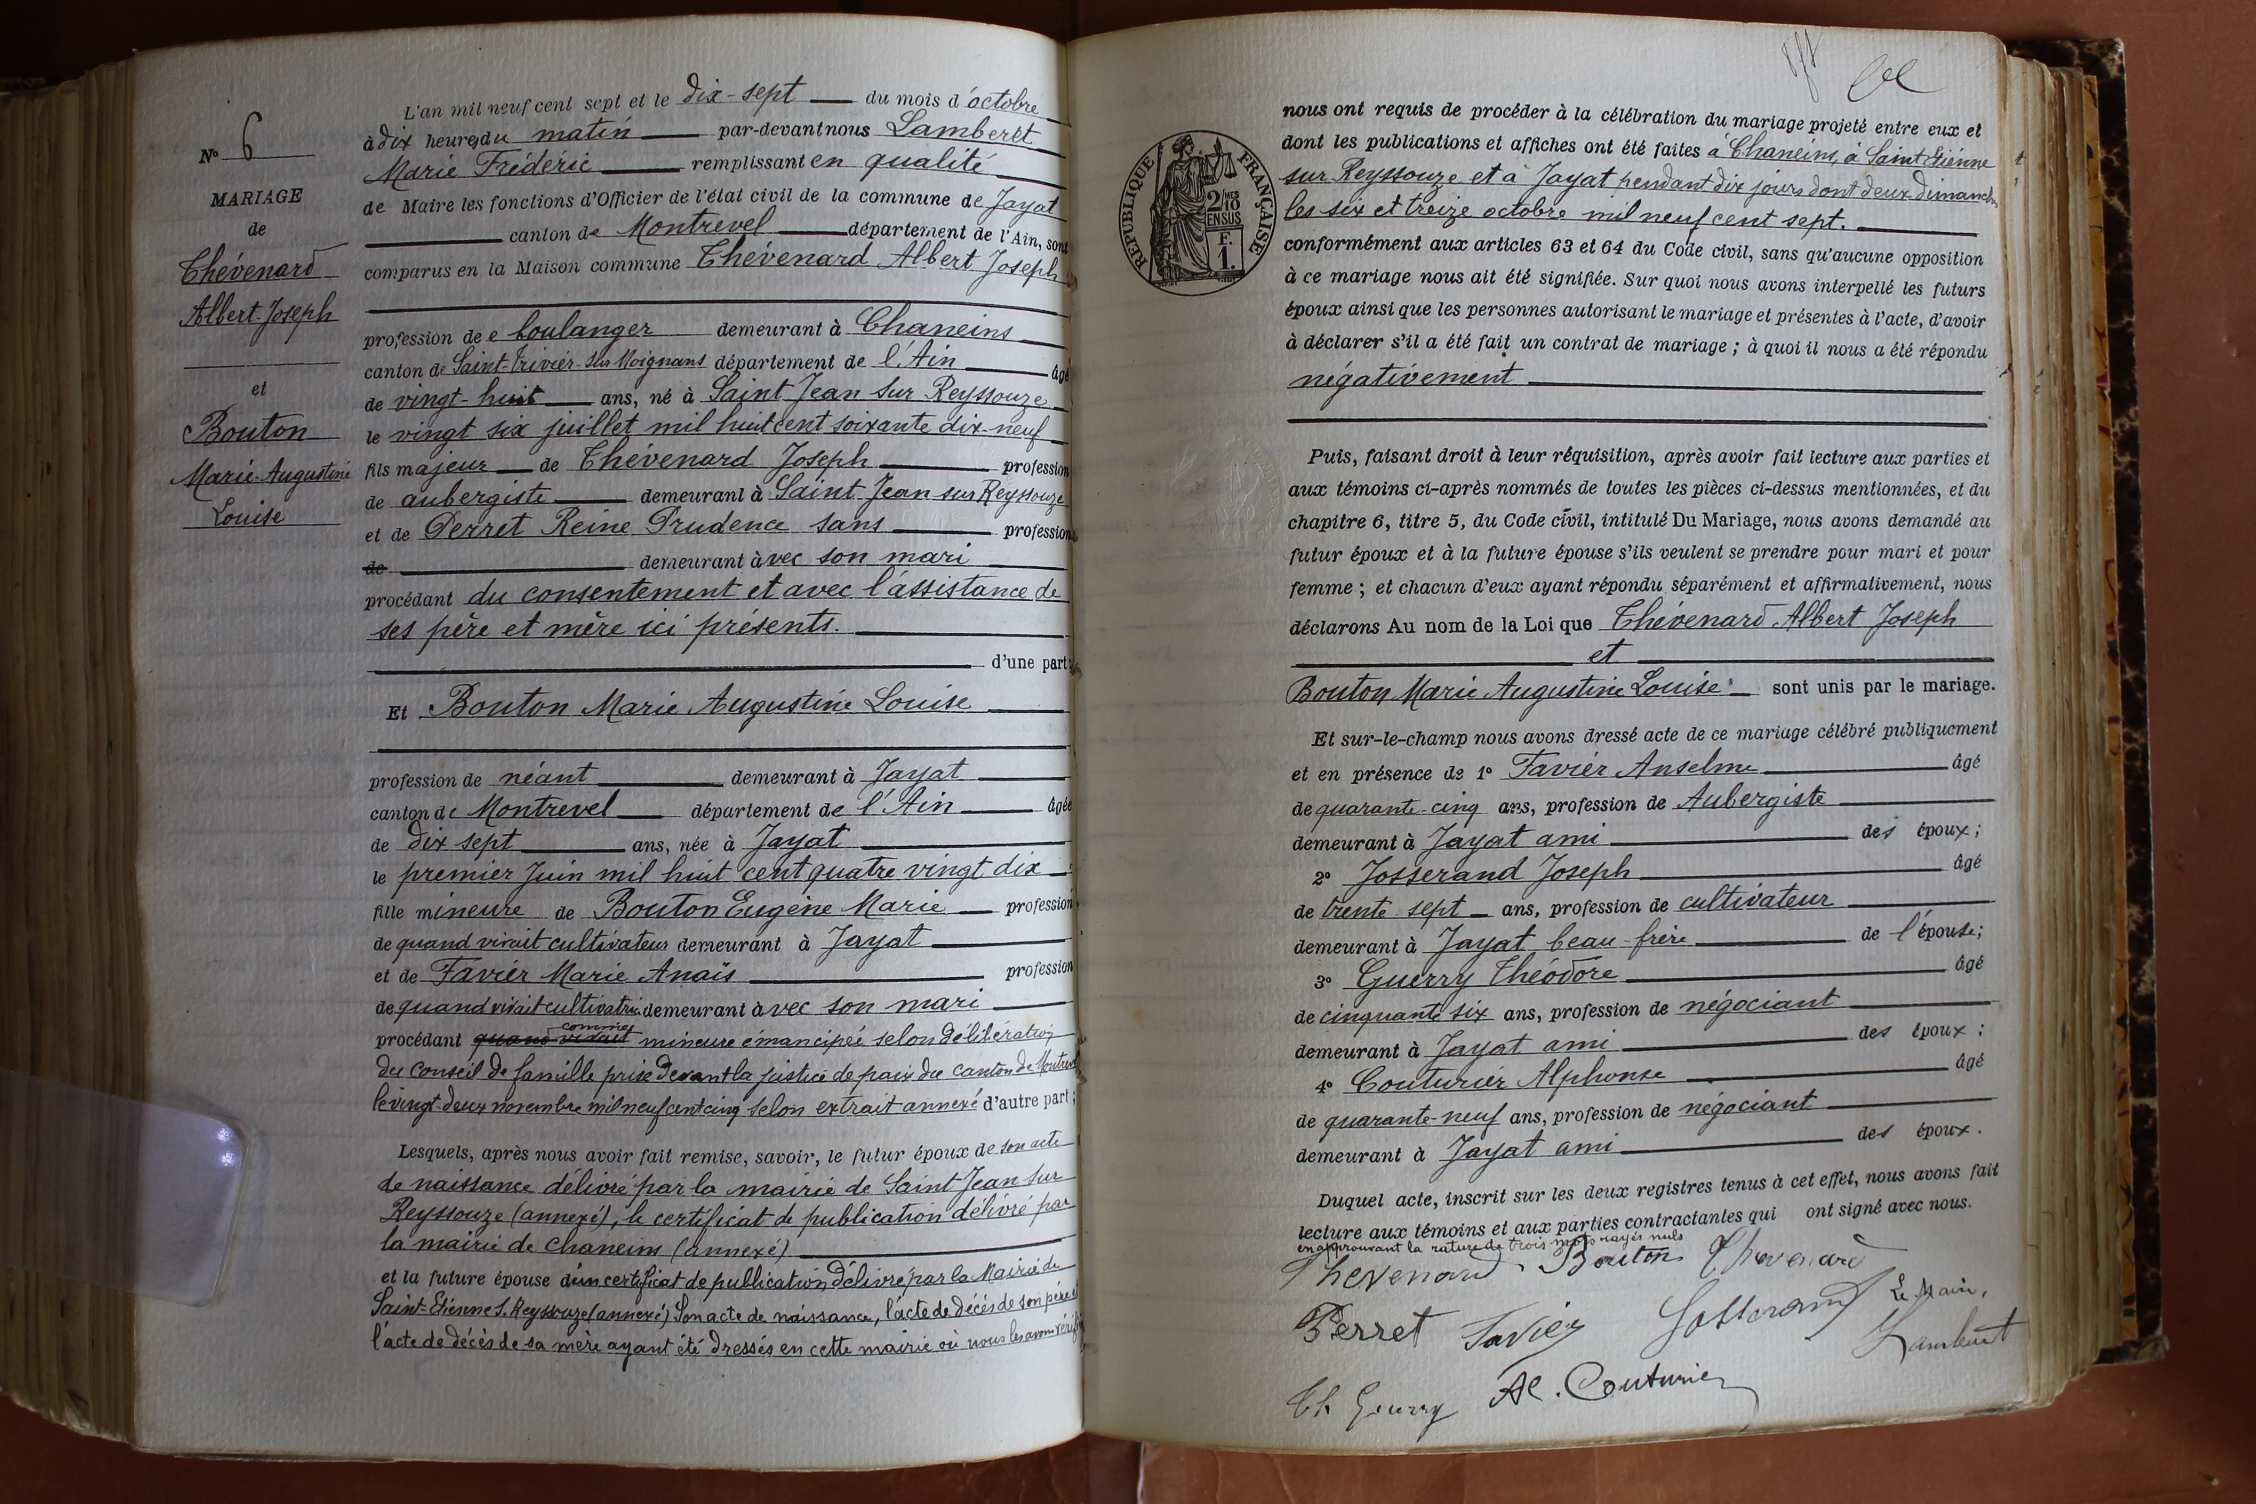 N° 6
MARIAGE
de
Thévenard
Albert Joseph
et
Bouton
Marie-Augustine
Louise
L'an mil neuf cent sept et le dix-sept du mois d'octobre
à dix heures du matin par-devant nous Lamberet
Marie Frédéric remplissant en qualité
de Maire les fonctions d'Officier de l'état civil de la commune de Jayat
canton de Montrevel département de l'Ain, sont
comparus en la Maison commune Thévenard Albert Joseph
profession de boulanger demeurant à Chaneins
canton de Saint-Trivier-sur Moignans département de l'Ain âgé
de vingt-huit ans, né à Saint Jean sur Reyssouze
le vingt six juillet mil huit cent soixante dix-neuf
fils majeur de Thévenard Joseph profession
de aubergiste demeurant à Saint Jean sur Reyssouze
et de Perret Reine Prudence sans profession
de demeurant avec son mari
procédant du consentement et avec l'assistance de
ses père et mère ici présents.
d'une part;
Et Bouton Marie Augustine Louise
profession de néant demeurant à Jayat
canton de Montrevel département de l'Ain âgée
de dix sept ans, née à Jayat
le premier Juin mil huit cent quatre vingt dix
fille mineure de Bouton Eugène Marie profession
de quand vivait cultivateur demeurant à Jayat
et de Favier Marie Anaïs profession
de quand vivait cultivatrice demeurant avec son mari
procédant quand vivait comme mineure émancipée selon délibération
du conseil de famille prise devant la justice de paix du canton de Montrevel
le vingt-deux novembre mil neuf cent cinq selon extrait annexé d'autre part;
Lesquels, après nous avoir fait remise, savoir, le futur époux de son acte
de naissance délivré par la mairie de Saint Jean sur
Reyssouze (annexé), le certificat de publication délivré par
la mairie de Chaneins (annexé)
et la future épouse d'un certificat de publication délivré par la Mairie de
Saint-Etienne s. Reyssouze (annexé) Son acte de naissance, l'acte de décès de son père et
l'acte de décès de sa mère ayant été dressés en cette mairie où nous les avons vérifiés
RÉPUBLIQUE FRANÇAISE
2/10 MES
EN SUS
F.
1.
nous ont requis de procéder à la célébration du mariage projeté entre eux et
dont les publications et affiches ont été faites à Chaneins, à Saint Etienne
sur Reyssouze et à Jayat pendant dix jours dont deux dimanches
les six et treize octobre mil neuf cent sept.
conformément aux articles 63 et 64 du Code civil, sans qu'aucune opposition
à ce mariage nous ait été signifiée. Sur quoi nous avons interpellé les futurs
époux ainsi que les personnes autorisant le mariage et présentes à l'acte, d'avoir
à déclarer s'il a été fait un contrat de mariage; à quoi il nous a été répondu
négativement
Puis, faisant droit à leur réquisition, après avoir fait lecture aux parties et
aux témoins ci-après nommés de toutes les pièces ci-dessus mentionnées, et du
chapitre 6, titre 5, du Code civil, intitulé Du Mariage, nous avons demandé au
futur époux et à la future épouse s'ils veulent se prendre pour mari et pour
femme; et chacun d'eux ayant répondu séparément et affirmativement, nous
déclarons Au nom de la Loi que Thévenard Albert Joseph
et
Bouton Marie Augustine Louise sont unis par le mariage.
Et sur-le-champ nous avons dressé acte de ce mariage célébré publiquement
et en présence de 1° Favier Anselme âgé
de quarante-cinq ans, profession de Aubergiste
demeurant à Jayat ami des époux;
2° Josserand Joseph âgé
de trente sept ans, profession de cultivateur
demeurant à Jayat beau-frère de l'épouse;
3° Guerry Théodore âgé
de cinquante six ans, profession de négociant
demeurant à Jayat ami des époux;
4° Couturier Alphonse âgé
de quarante-neuf ans, profession de négociant
demeurant à Jayat ami des époux.
Duquel acte, inscrit sur les deux registres tenus à cet effet, nous avons fait
lecture aux témoins et aux parties contractantes qui ont signé avec nous.
en approuvant la rature de trois mots rayés nuls
Thevenard Bouton Thevenard
Perret Favier Josserand Le Maire,
Lamberet
Th Guerry Al. Couturier